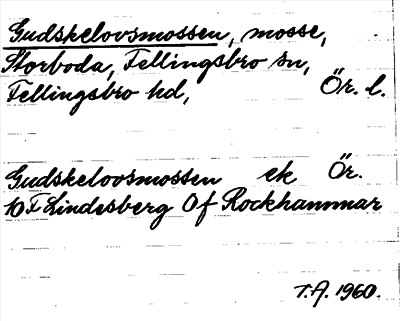 Gudskelovsmossen, mosse,
Storboda, Fellingsbro sn,
Fellingsbro hd, Ör. l.
Gudskelovsmossen ek Ör.
10F Lindesberg 0f Rockhammar
T.A. 1960.